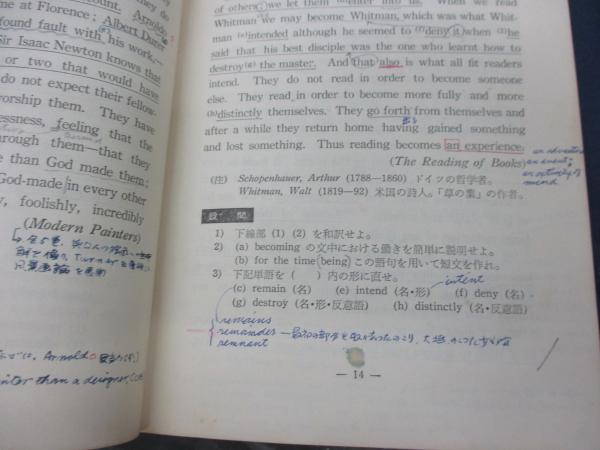 ccount. Arnold
me at Florence; Albert Dürer
found fault with his work,—
Sir Isaac Newton knows that
or two that would have
do not expect their fellow-
worship them. They have
lessness, feeling that the
through them—that they
e than God made them;
God-made in every other
y, foolishly, incredibly
(Modern Painters)
of others; we let them enter into us. When we read
Whitman we may become Whitman, which was what Whit-
man (e)intended although he seemed to (f)deny it when he
said that his best disciple was the one who learnt how to
destroy(g) the master. And that also is what all fit readers
intend. They do not read in order to become someone
else. They read in order to become more fully and more
(h)distinctly themselves. They go forth from themselves and
after a while they return home having gained something
and lost something. Thus reading becomes an experience.
(The Reading of Books)
an adventure
an event;
(注) Schopenhauer, Arthur (1788—1860) ドイツの哲学者。
Whitman, Walt (1819—92) 米国の詩人。「草の葉」の作者。
設 問
1) 下線部 (1) (2) を和訳せよ。
2) (a) becoming の文中における働きを簡単に説明せよ。
(b) for the time being この語句を用いて短文を作れ。
3) 下記単語を ( ) 内の形に直せ。
intent
(c) remain (名) (e) intend (名・形) (f) deny (名)
(g) destroy (名・形・反意語) (h) distinctly (名・反意語)
remains
remainder
remnant
Arnold
than a designer,
— 14 —